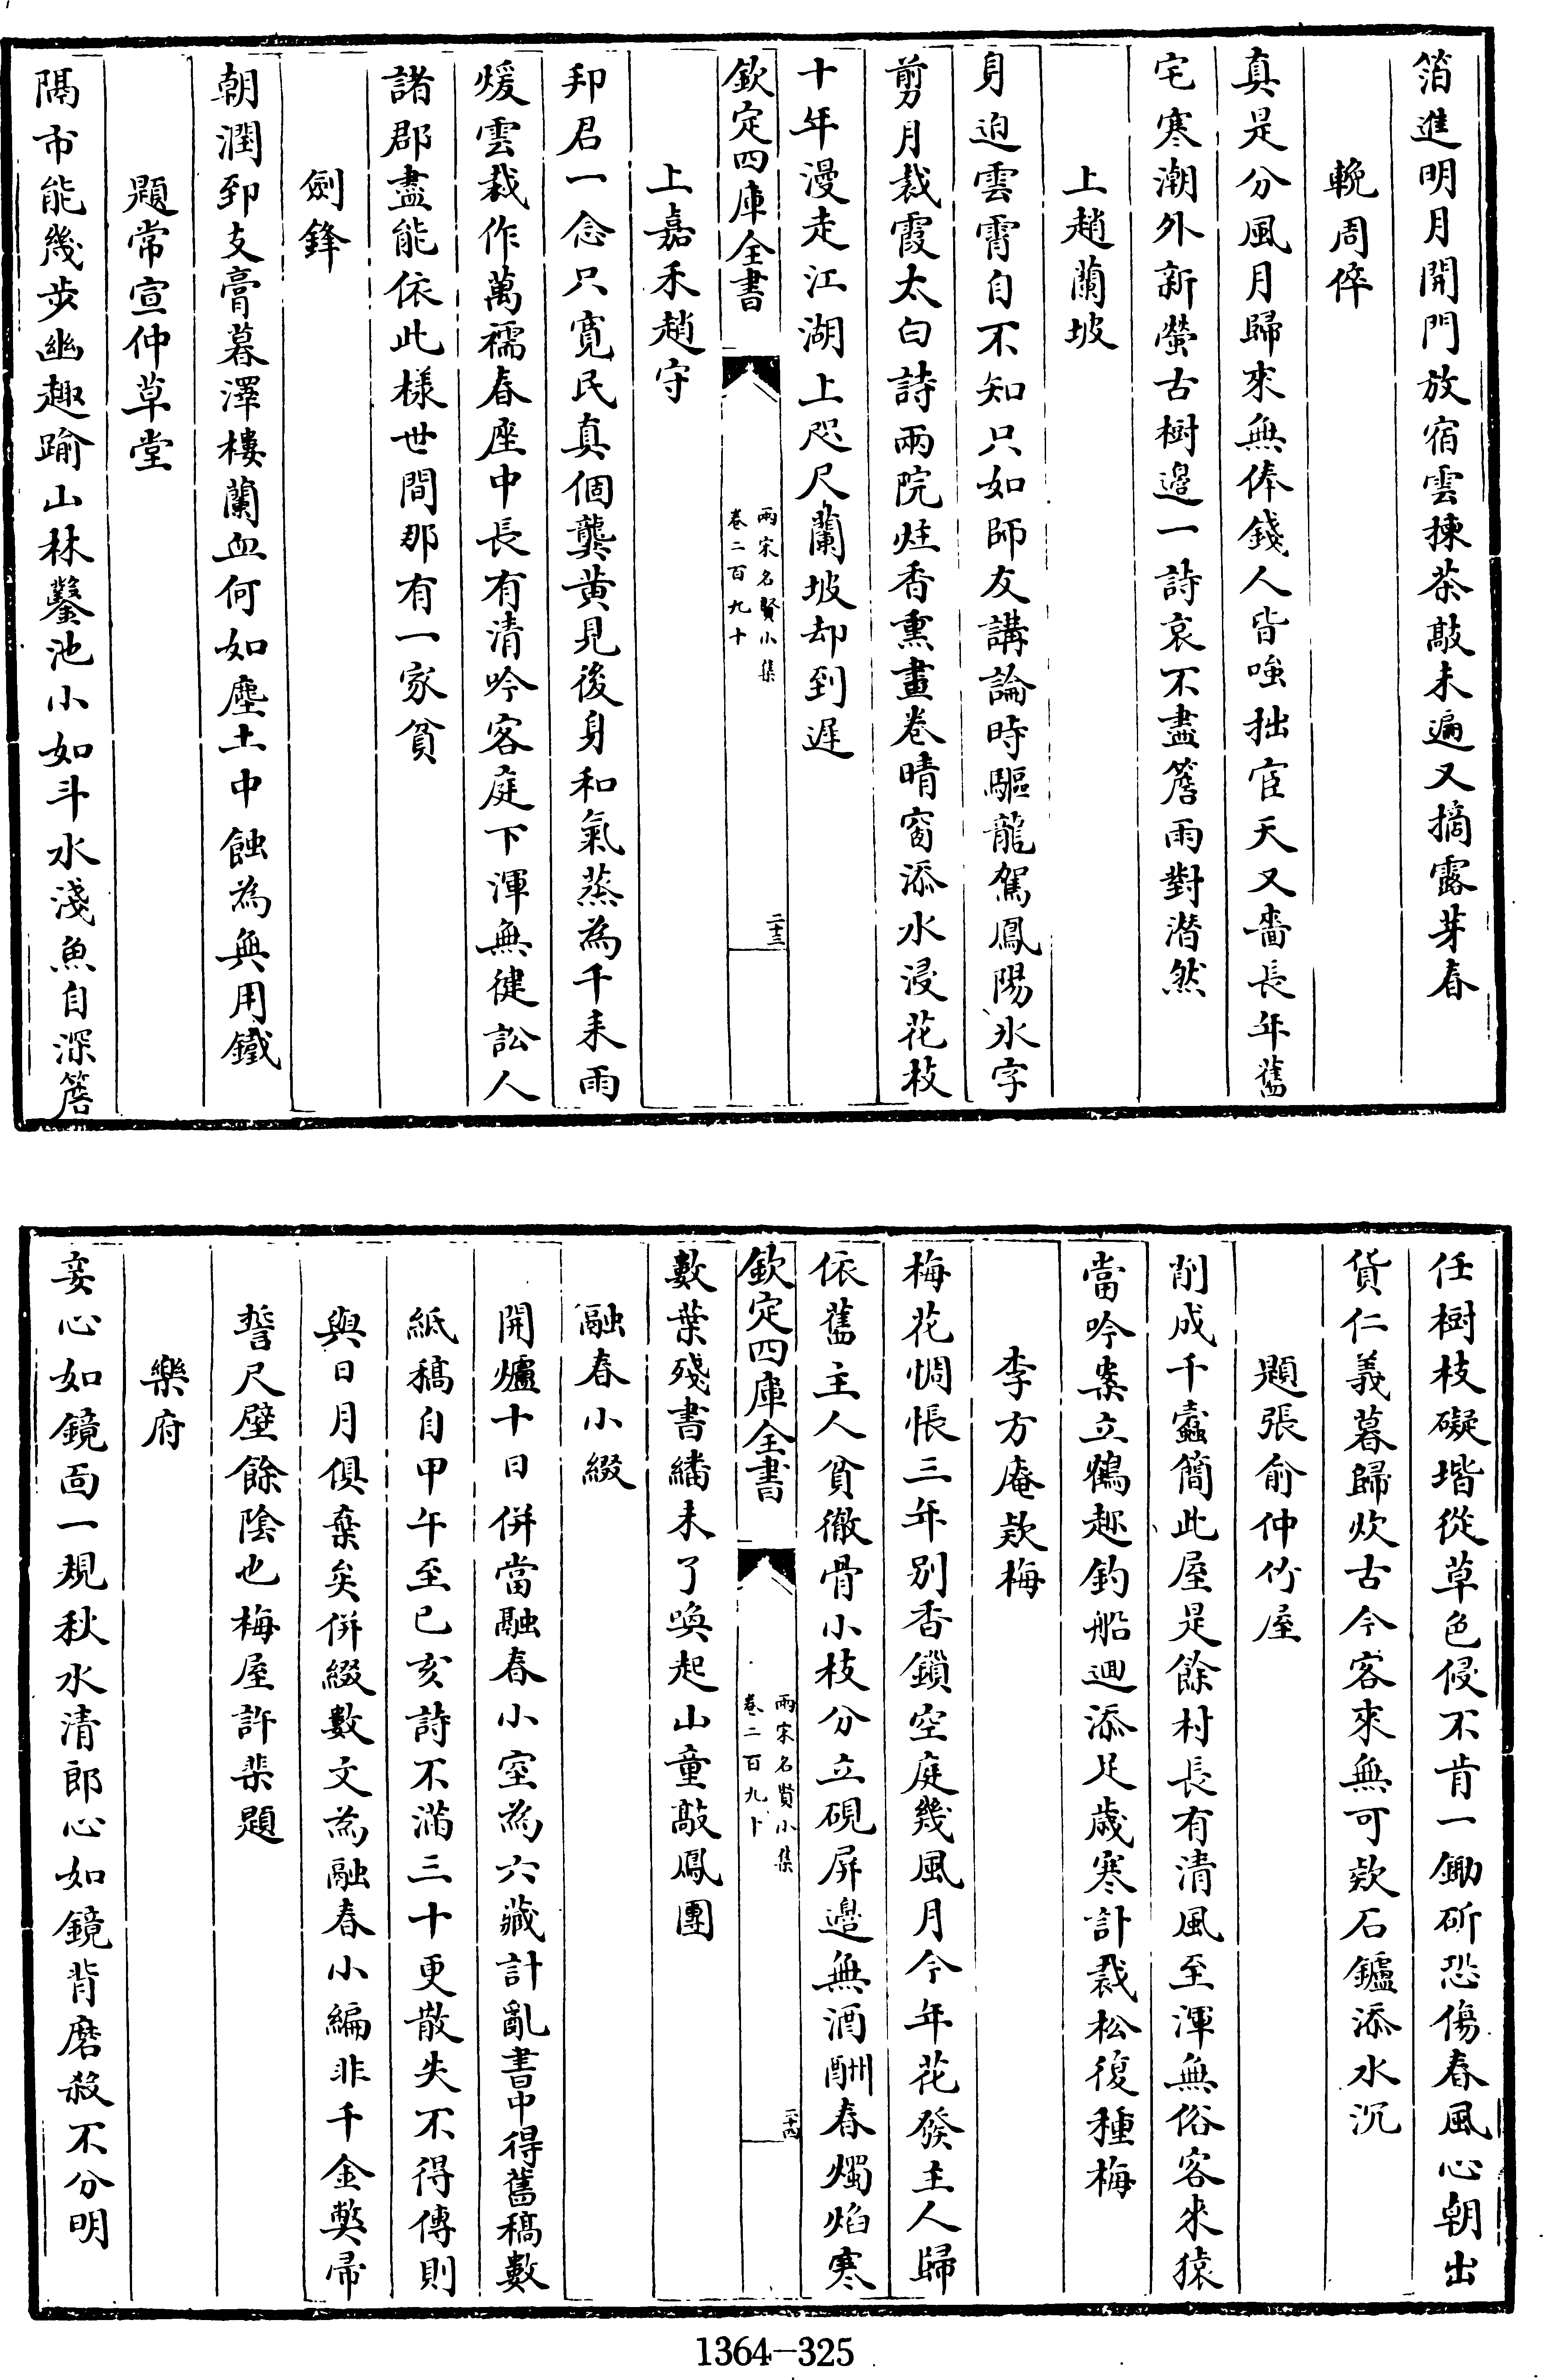 箔進明月開門放宿雲揀茶敲未遍又摘露芽春
輓周倅
真是分風月歸來無俸錢人皆嗤拙宦天又嗇長年舊
宅寒潮外新塋古樹邊一詩哀不盡簷雨對潸然
上趙蘭坡
身迫雲霄自不知只如師友講論時驅龍駕鳳陽氷字
剪月裁霞太白詩兩院炷香熏畫卷晴窗添水浸花枝
十年漫走江湖上咫尺蘭坡却到遲
欽定四庫全書
兩宋名賢小集
卷二百九十
二十三
上嘉禾趙守
邦君一念只寬民真個龔黄見後身和氣蒸為千耒雨
煖雲裁作萬襦春座中長有清吟客庭下渾無健訟人
諸郡盡能依此樣世間那有一家貧
劍鋒
朝潤郅支膏暮澤樓蘭血何如塵土中蝕為無用鐵
題常宣仲草堂
隔市能幾步幽趣踰山林鑿池小如斗水淺魚自深簷
任樹枝礙堦從草色侵不肯一鋤斫恐傷春風心朝出
貨仁義暮歸炊古今客來無可欵石鑪添水沉
題張俞仲竹屋
削成千蠧簡此屋是餘村長有清風至渾無俗客來猿
當吟案立鶴趂釣船迴添足歲寒計裁松復種梅
李方庵欵梅
梅花惆悵三年别香鎖空庭幾風月今年花發主人歸
依舊主人貧徹骨小枝分立硯屏邊無酒酬春燭焰寒
欽定四庫全書
兩宋名賢小集
卷二百九十
二十四
數葉殘書繙未了喚起山童敲鳳團
融春小綴
開爐十日併當融春小室為六藏計亂書中得舊稿數
紙稿自甲午至己亥詩不滿三十更散失不得傳則
與日月俱棄矣併綴數文為融春小編非千金獘帚
誓尺璧餘陰也梅屋許棐題
樂府
妾心如鏡面一規秋水清郎心如鏡背磨殺不分明
1364-325